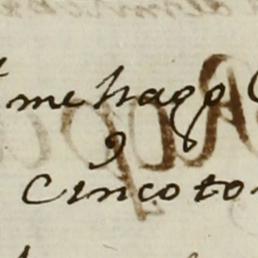 me hago
Cinco to